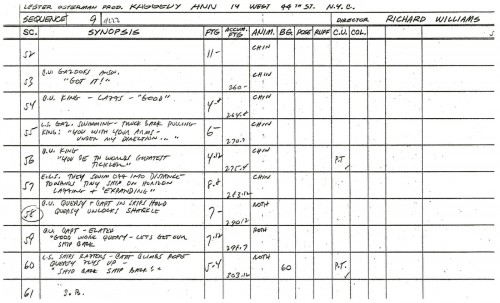 LESTER OSTERMAN PROD. RAGGEDY ANN 14 WEST 44TH ST. N.Y.C.
SEQUENCE 9 DIRECTOR RICHARD WILLIAMS
SC. SYNOPSIS FTG ACCUM. FTG ANIM. BG. POSE RUFF C.U. COL.
52 11- CHIN
53 C.U. GAZOOKS "GOT IT!" 260- CHIN
54 C.U. KING - LAFFS - "GOOD" 4-8 264.8 CHIN
55 L.S. GAZ. SWIMMING - TRUCK BACK PULLING
KING: "YOU WITH YOUR ARMS -
UNDER MY DIRECTION..." 6- 270.8 CHIN
56 C.U. KING
"YOU'RE TH WORLDS GREATEST
TICKLER" 4.12 275.4 CHIN P.T.
57 E.L.S. THEY SWIM OFF INTO DISTANCE
TOWARDS TINY SHIP ON HORIZON
LAFFING + "EXPANDING" 8.8 283.12 CHIN
58 C.U. QUEASY + CAPT IN SHIPS HOLD
QUEASY UNLOCKS SHACKLE 7- 290.12
59 C.U. CAPT - ELATED
"GOOD WORK QUEASY - LETS GET OUR
SHIP BACK 7.12
60 L.S. SHIPS RATTERS - CAPT CLIMBS ROPE
QUEASY FLYS UP -
"SHIP BACK SHIP BACK!" 5.4 303.12 60 P.T.
61 S.B.